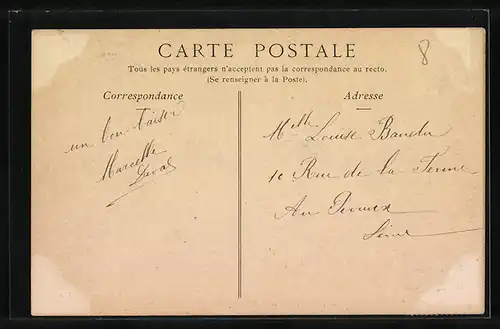 CARTE POSTALE
8
Tous les pays étrangers n'acceptent pas la correspondance au recto.
(Se renseigner à la Poste).
Correspondance
un bon baiser
Marcelle
Adresse
Melle Louise
10 Rue de la Ferme
Au Perreux
Seine